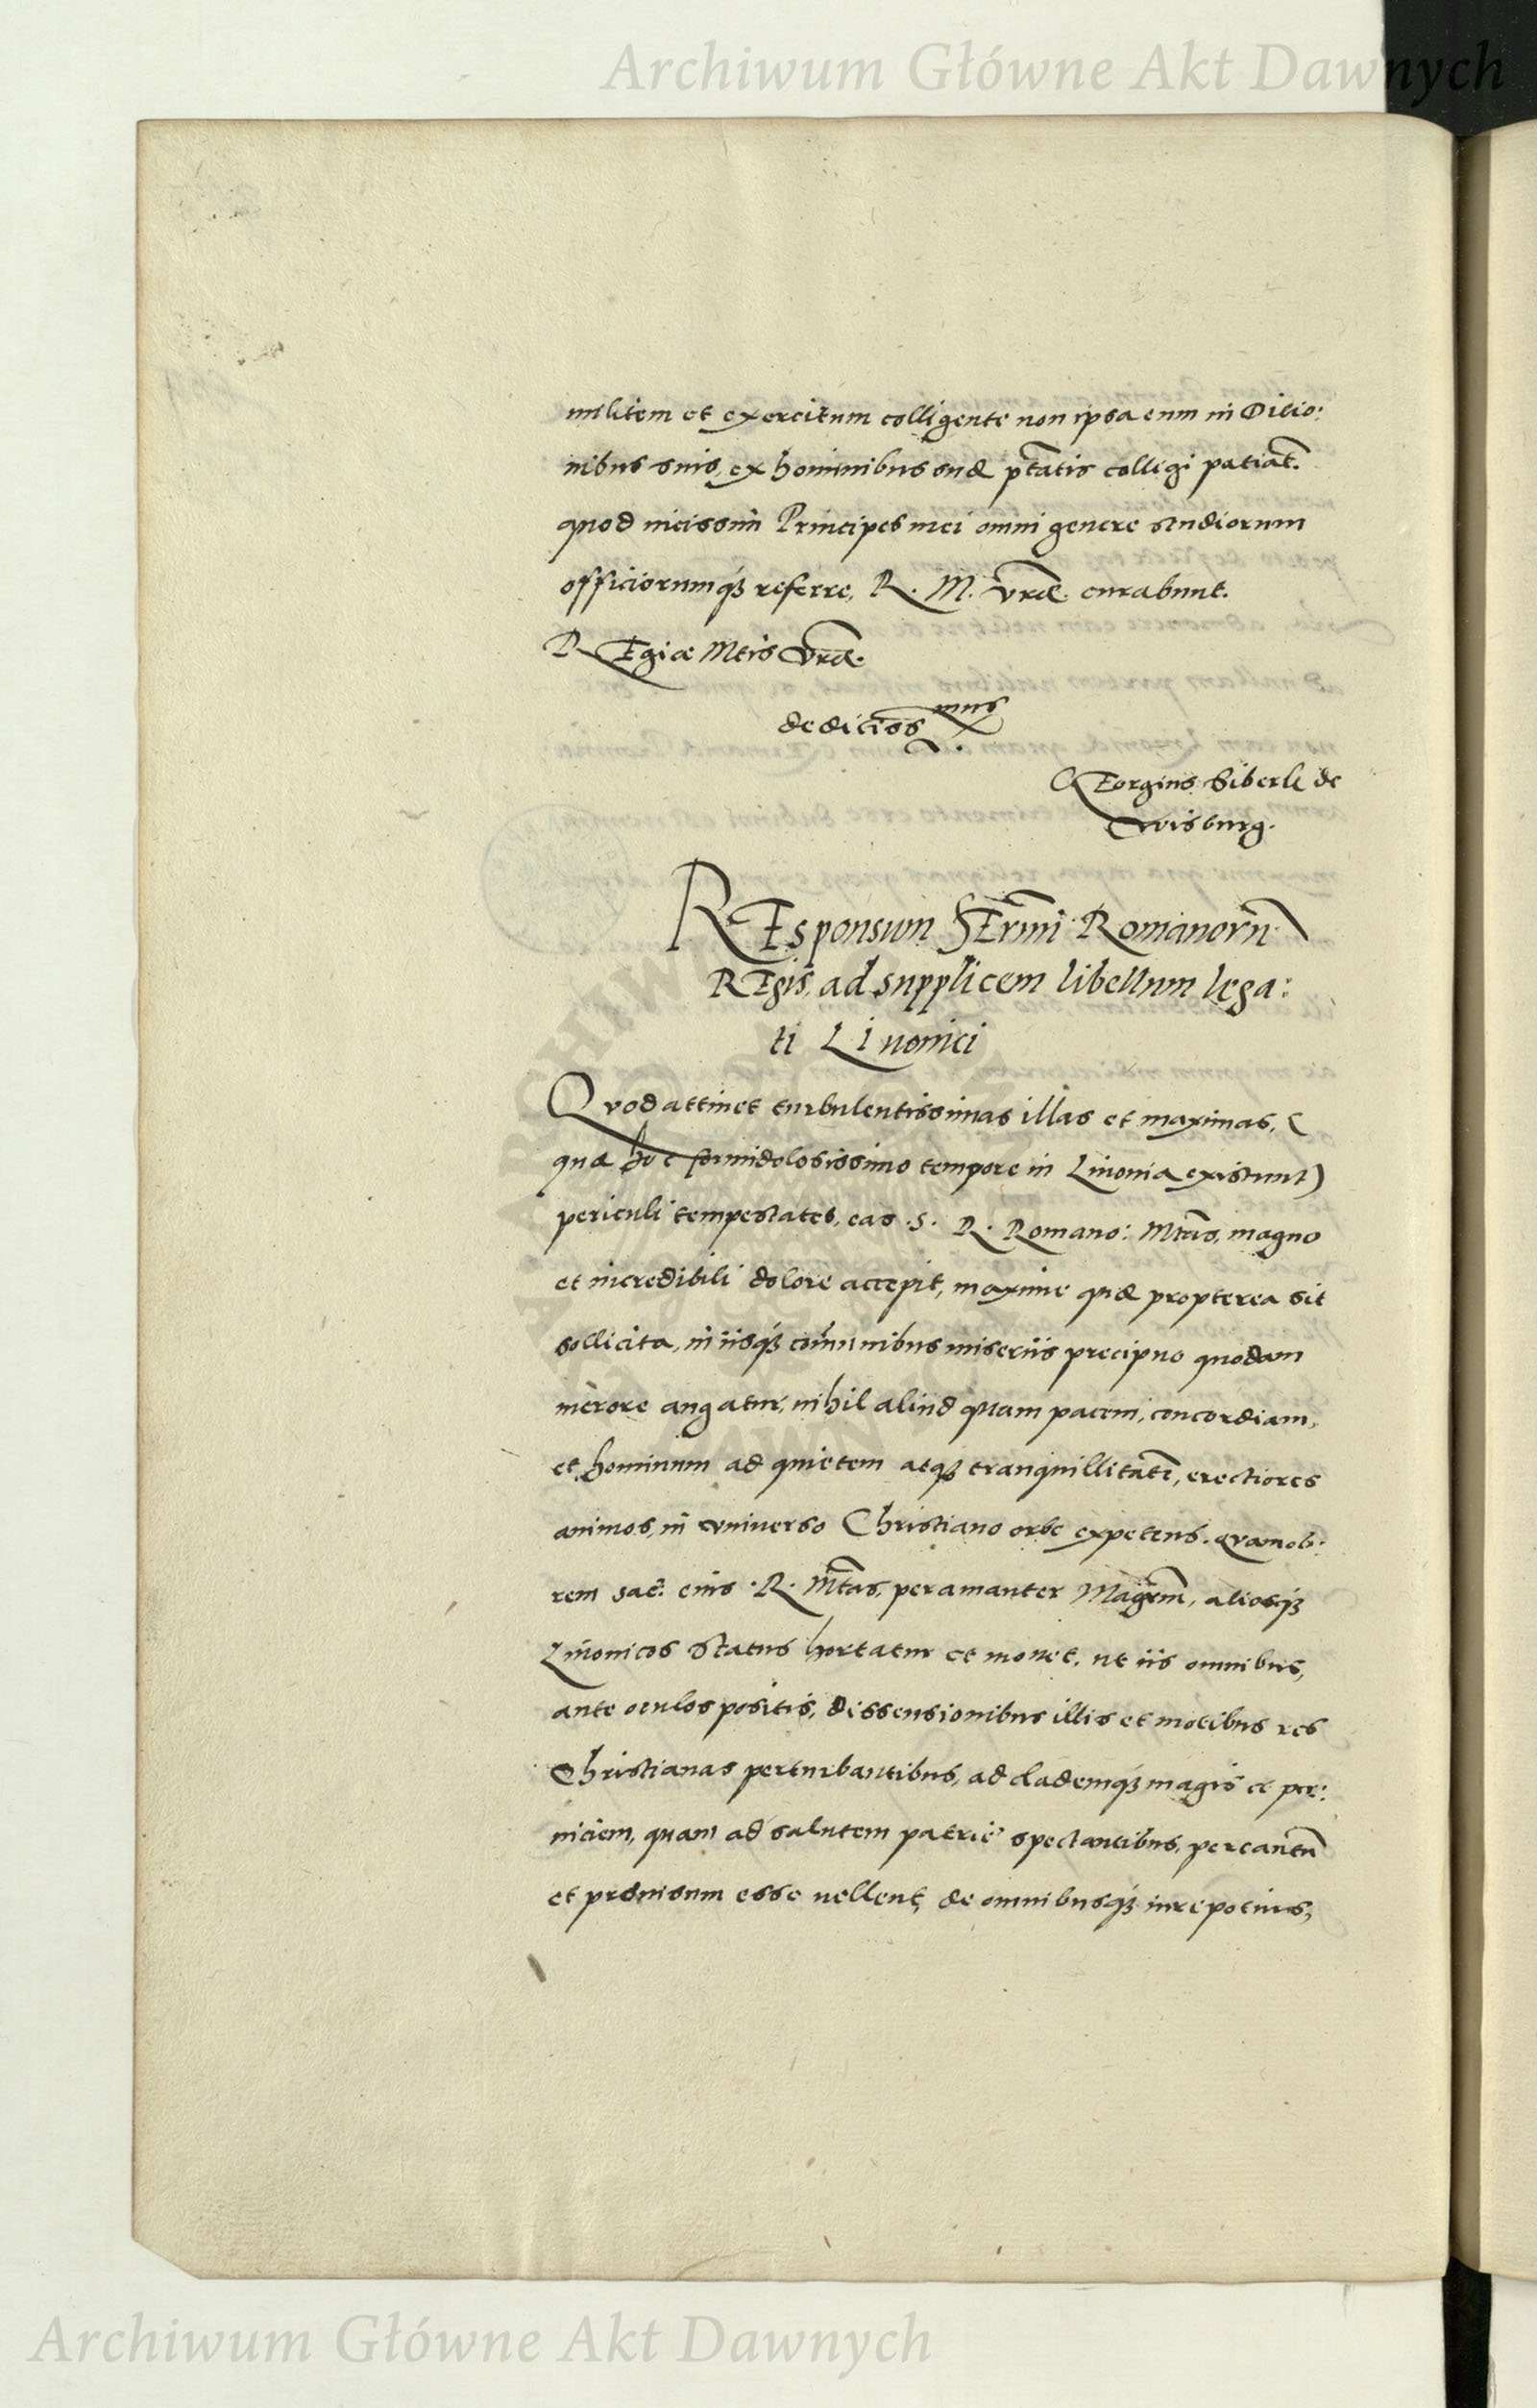 Archiwum Główne Akt Dawnych
militem et exercitum colligente non ipsa eum in Ditio:
nibus suis, ex hominibus suæ ptatis colligi patiat.
quod vicissim Principes mei omni genere studiorum
officiorumqꝫ referre, R. M. vræ. curabunt.
REgiæ Mtis Vræ.
deditiss mus
GEorgius Siberk de
Wisburg.
REsponsum SErmi Romanorū
REgis, ad supplicem libellum lega:
ti Livonici
Quod attinet turbulentissimas illas et maximas, (
quæ hoc formidolosissimo tempore in Livonia existunt)
periculi tempestates, eas .S. R. Romano: Mtas, magno
et incredibili dolore accepit, maxime quæ propterea sit
sollicita, in iisqꝫ comunibus miseriis precipuo quodam
merore angatur, nihil aliud quam pacem, concordiam,
et hominum ad quietem atqꝫ tranquillitatē, erectiores
animos, in vniverso Christiano orbe expetens. Quamob:
rem sac: eius .R. Mtas, peramanter Magrm, aliosqꝫ
Livonicos Status hortatur et monet, ut iis omnibus,
ante oculos positis, dissensionibus illis et motibus res
Christianas perturbantibus, ad clademqꝫ magis et per:
niciem, quam ad salutem patrie spectantibus, percautū
et provisum esse vellent, de omnibusqꝫ iure potius,
Archiwum Główne Akt Dawnych